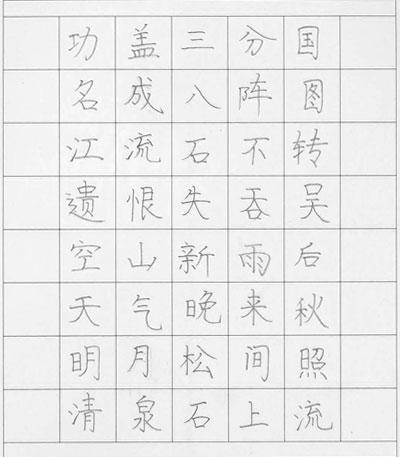 功盖三分国
名成八阵图
江流石不转
遗恨失吞吴
空山新雨后
天气晚来秋
明月松间照
清泉石上流